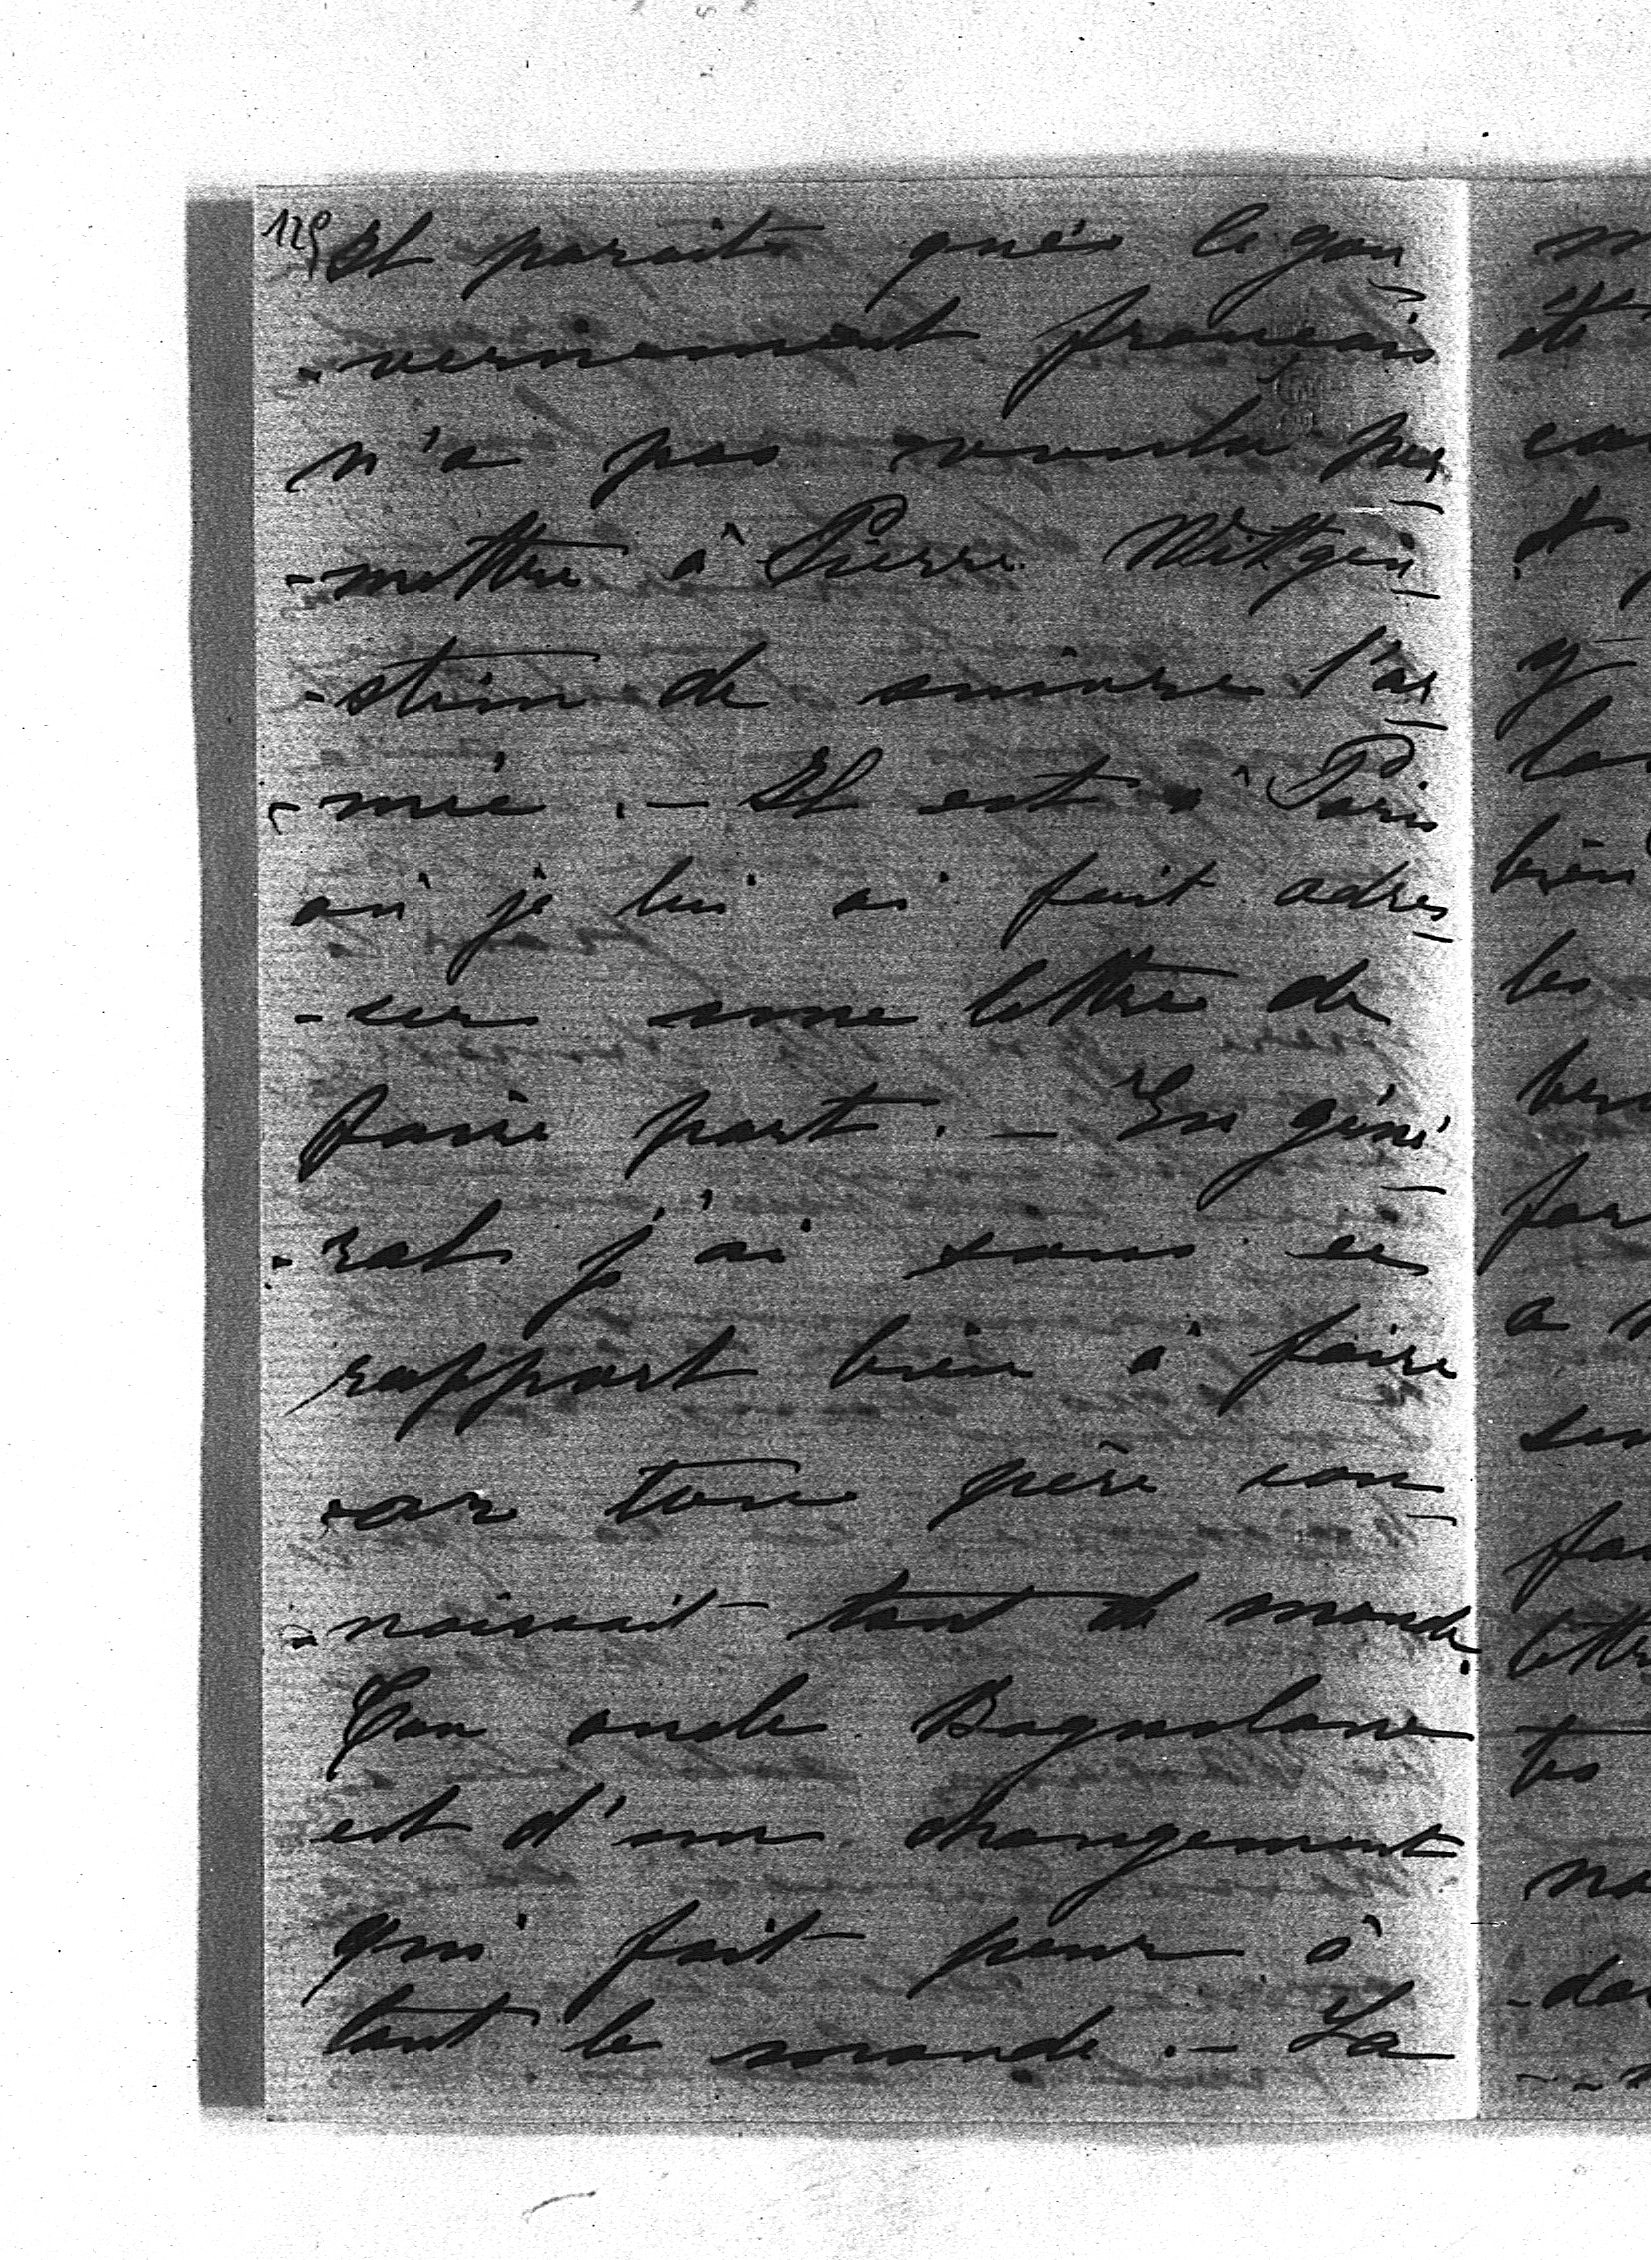 129
Il parait que le gou-
-vernement français
n'a pas voulu per-
-mettre à Pierre Wittgen-
-stein de suivre l'ar-
-mée. - Il est à Paris
où je lui ai fait adres-
-ser une lettre de
faire part. - En géné-
-ral j'ai sous ce
rapport bien à faire
car ton père con-
-naissait tant de monde.
Ton oncle Boguslave
est d'un changement
qui fait peur à
tout le monde. - La